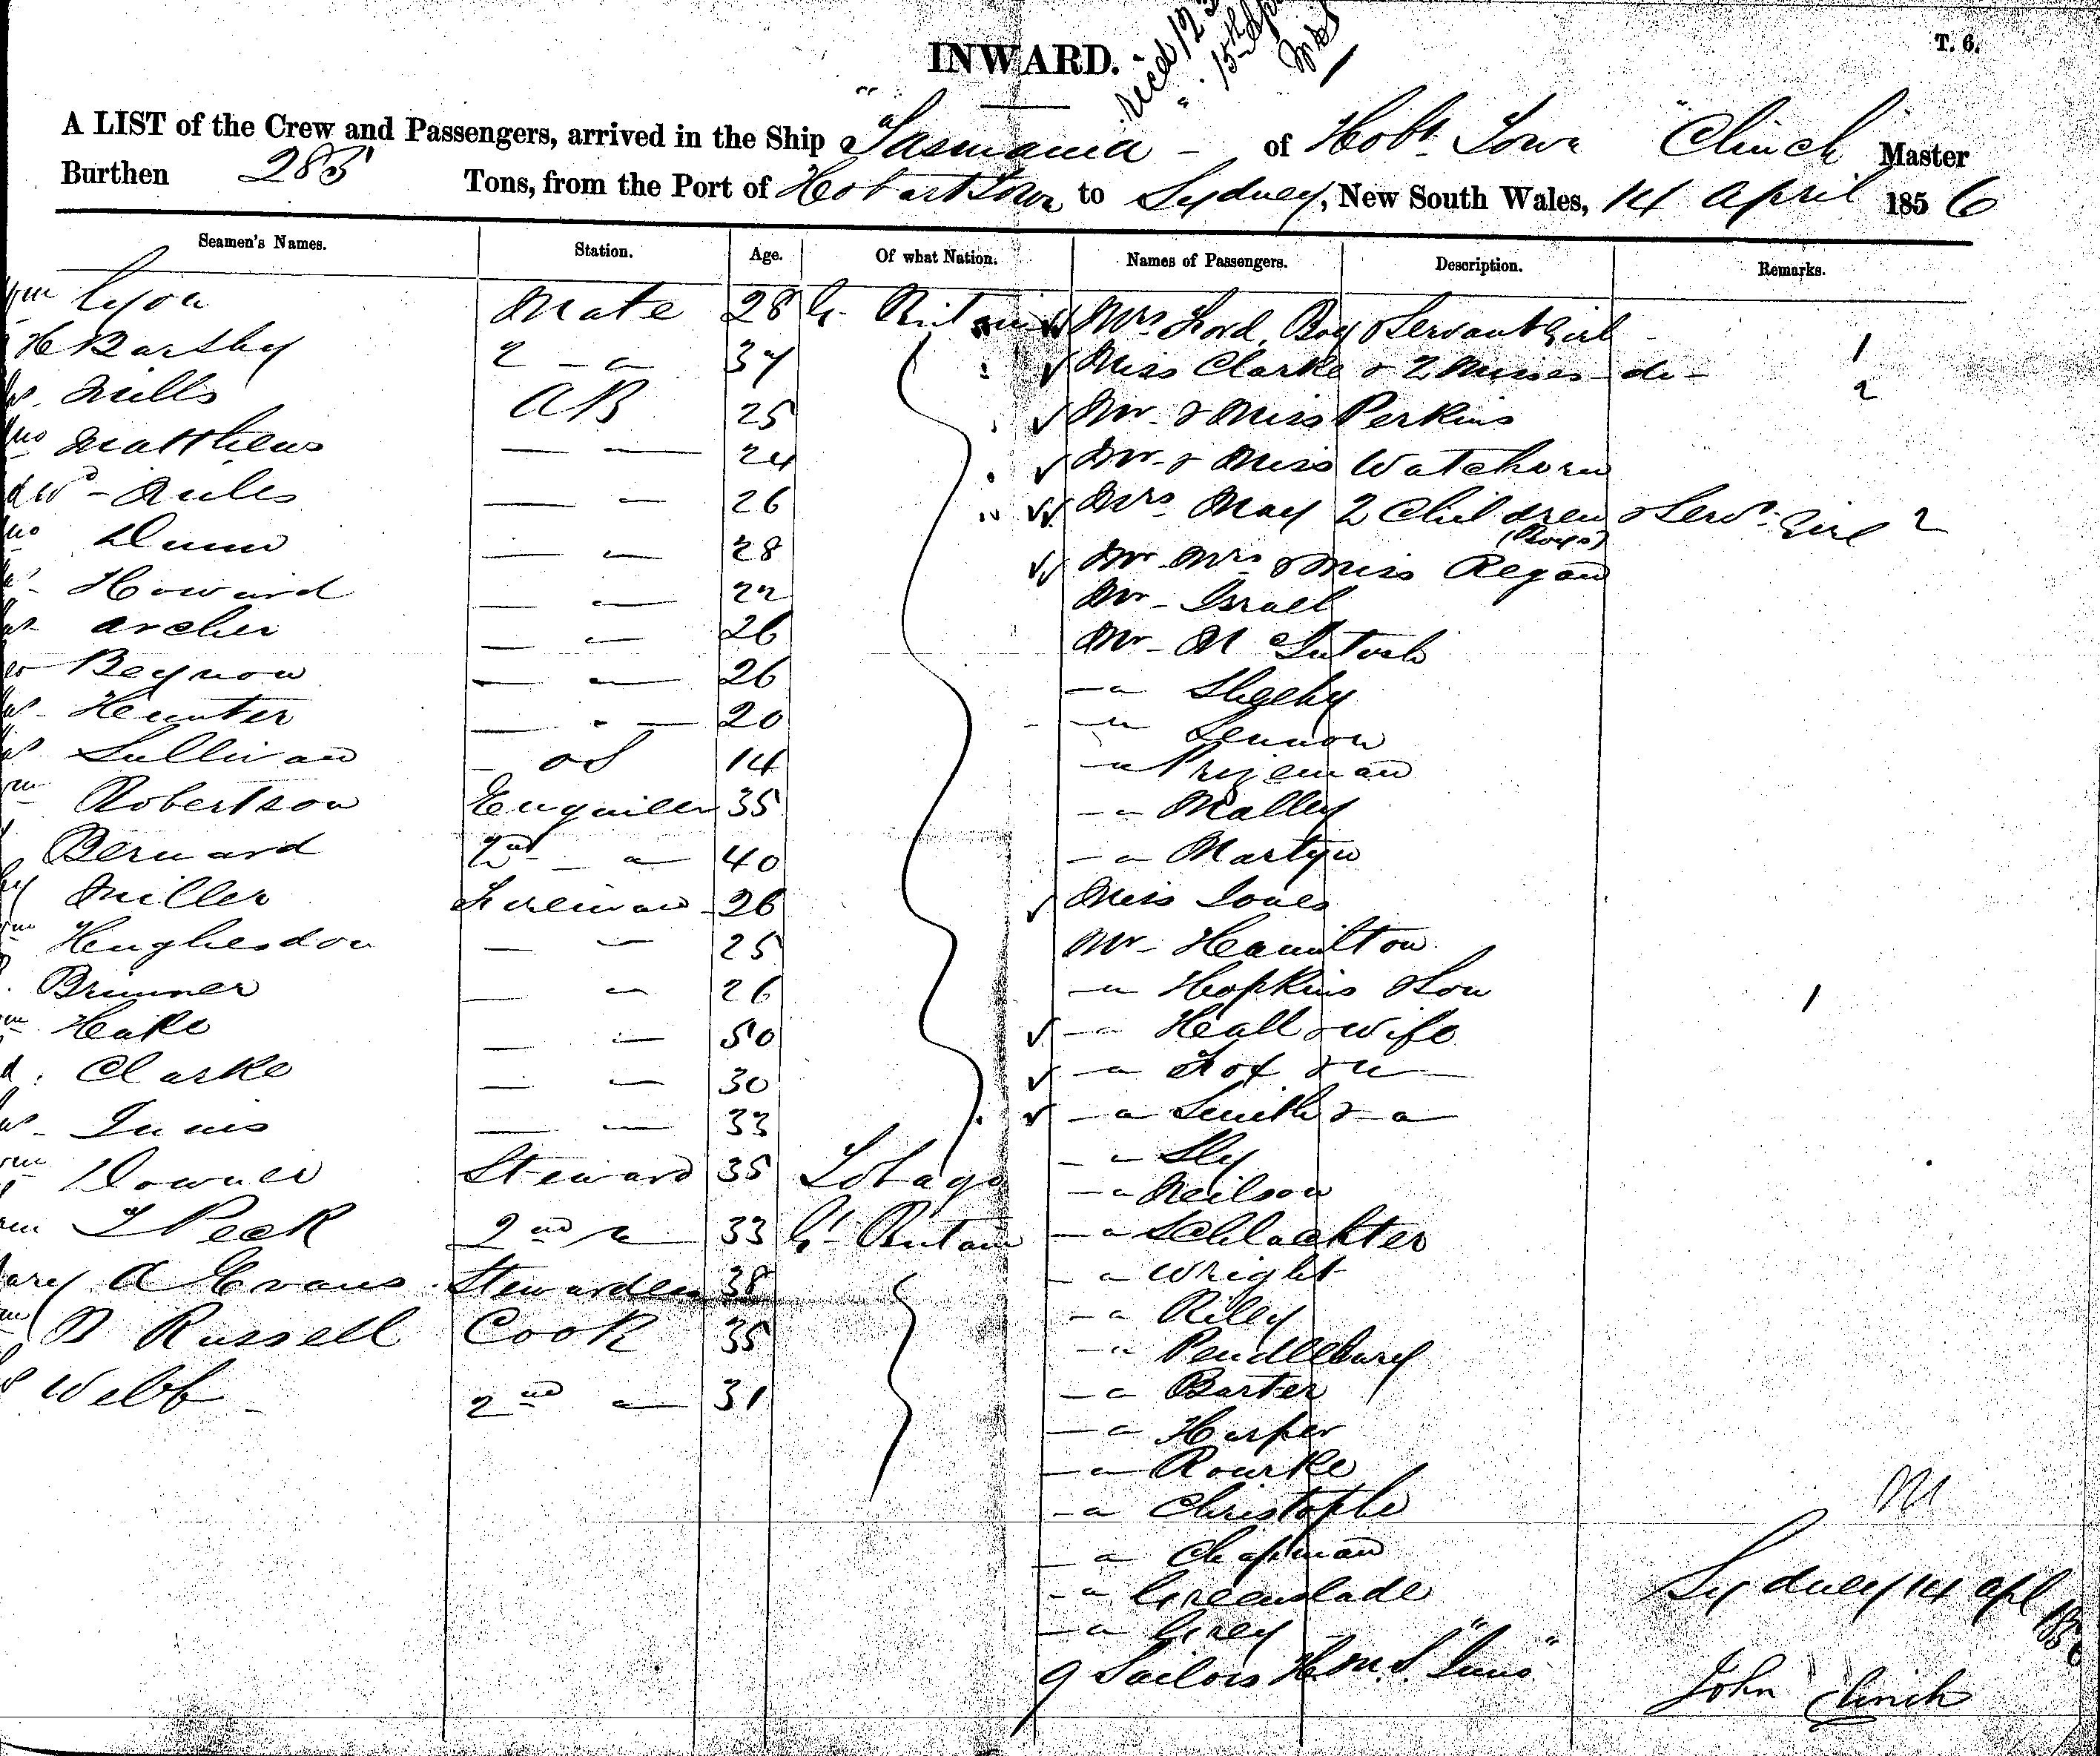 INWARD.
T. 6.
recd 12
15th Apl
A LIST of the Crew and Passengers, arrived in the Ship "Tasmania" - of Hobt. Town "Clinch" Master
Burthen 285 Tons, from the Port of Hobart Town to Sydney, New South Wales, 14 April 1856
Seamen's Names. Station. Age. Of what Nation. Names of Passengers. Description. Remarks.
Wm Lyon Mate 28 Gt. Britain Mrs Ford, Boy & Servant Girl 1
H Barthy 2 - " 37 Miss Clarke & 2 Misses - do - 2
Mills AB 25 Mr & Miss Perkins
Matthews — — 24 Mr & Miss Watchorn
Edwd - Miles — — 26 Mrs May 2 Children (Boys) & Servt. Girl 2
Dunn — — 28 Mr Mrs & Miss Regan
Howard — — 22 Mr - Israel
Archer — — 26 Mr - McIntosh
Beynon — — 26 — " Sheehy
Hunter — " — 20 — " Lennon
Sullivan — OS 14 — " Prizeman
Robertson Engineer 35 — " Malley
Bernard 2nd — " — 40 — " Martyn
Miller Fireman 26 Miss Jones
Hughesdon — — 25 Mr - Hamilton
Brunner — — 26 — " Hopkins & Son 1
Hake — — 50 — " Heall & Wife
Clarke — — 30 — " Fox & " —
Innis — — 33 — " Smith & — " —
Downer Steward 35 Tobago — " Sly
— " Neilson
T Peck 2nd " 33 Gt. Britain — " Schlachter
Mary A Evans Stewardess 38 — " Wright
— " Riley
Russell Cook 35 — " Pendlebury
Webb 2nd " — 31 — " Barter
— " Harper
— " Rourke
— " Christophe
— " Chapman
— " Greenslade
— " Grey
9 Sailors H.M.S. "Juno"
Sydney 14 Apl 1856
John Clinch